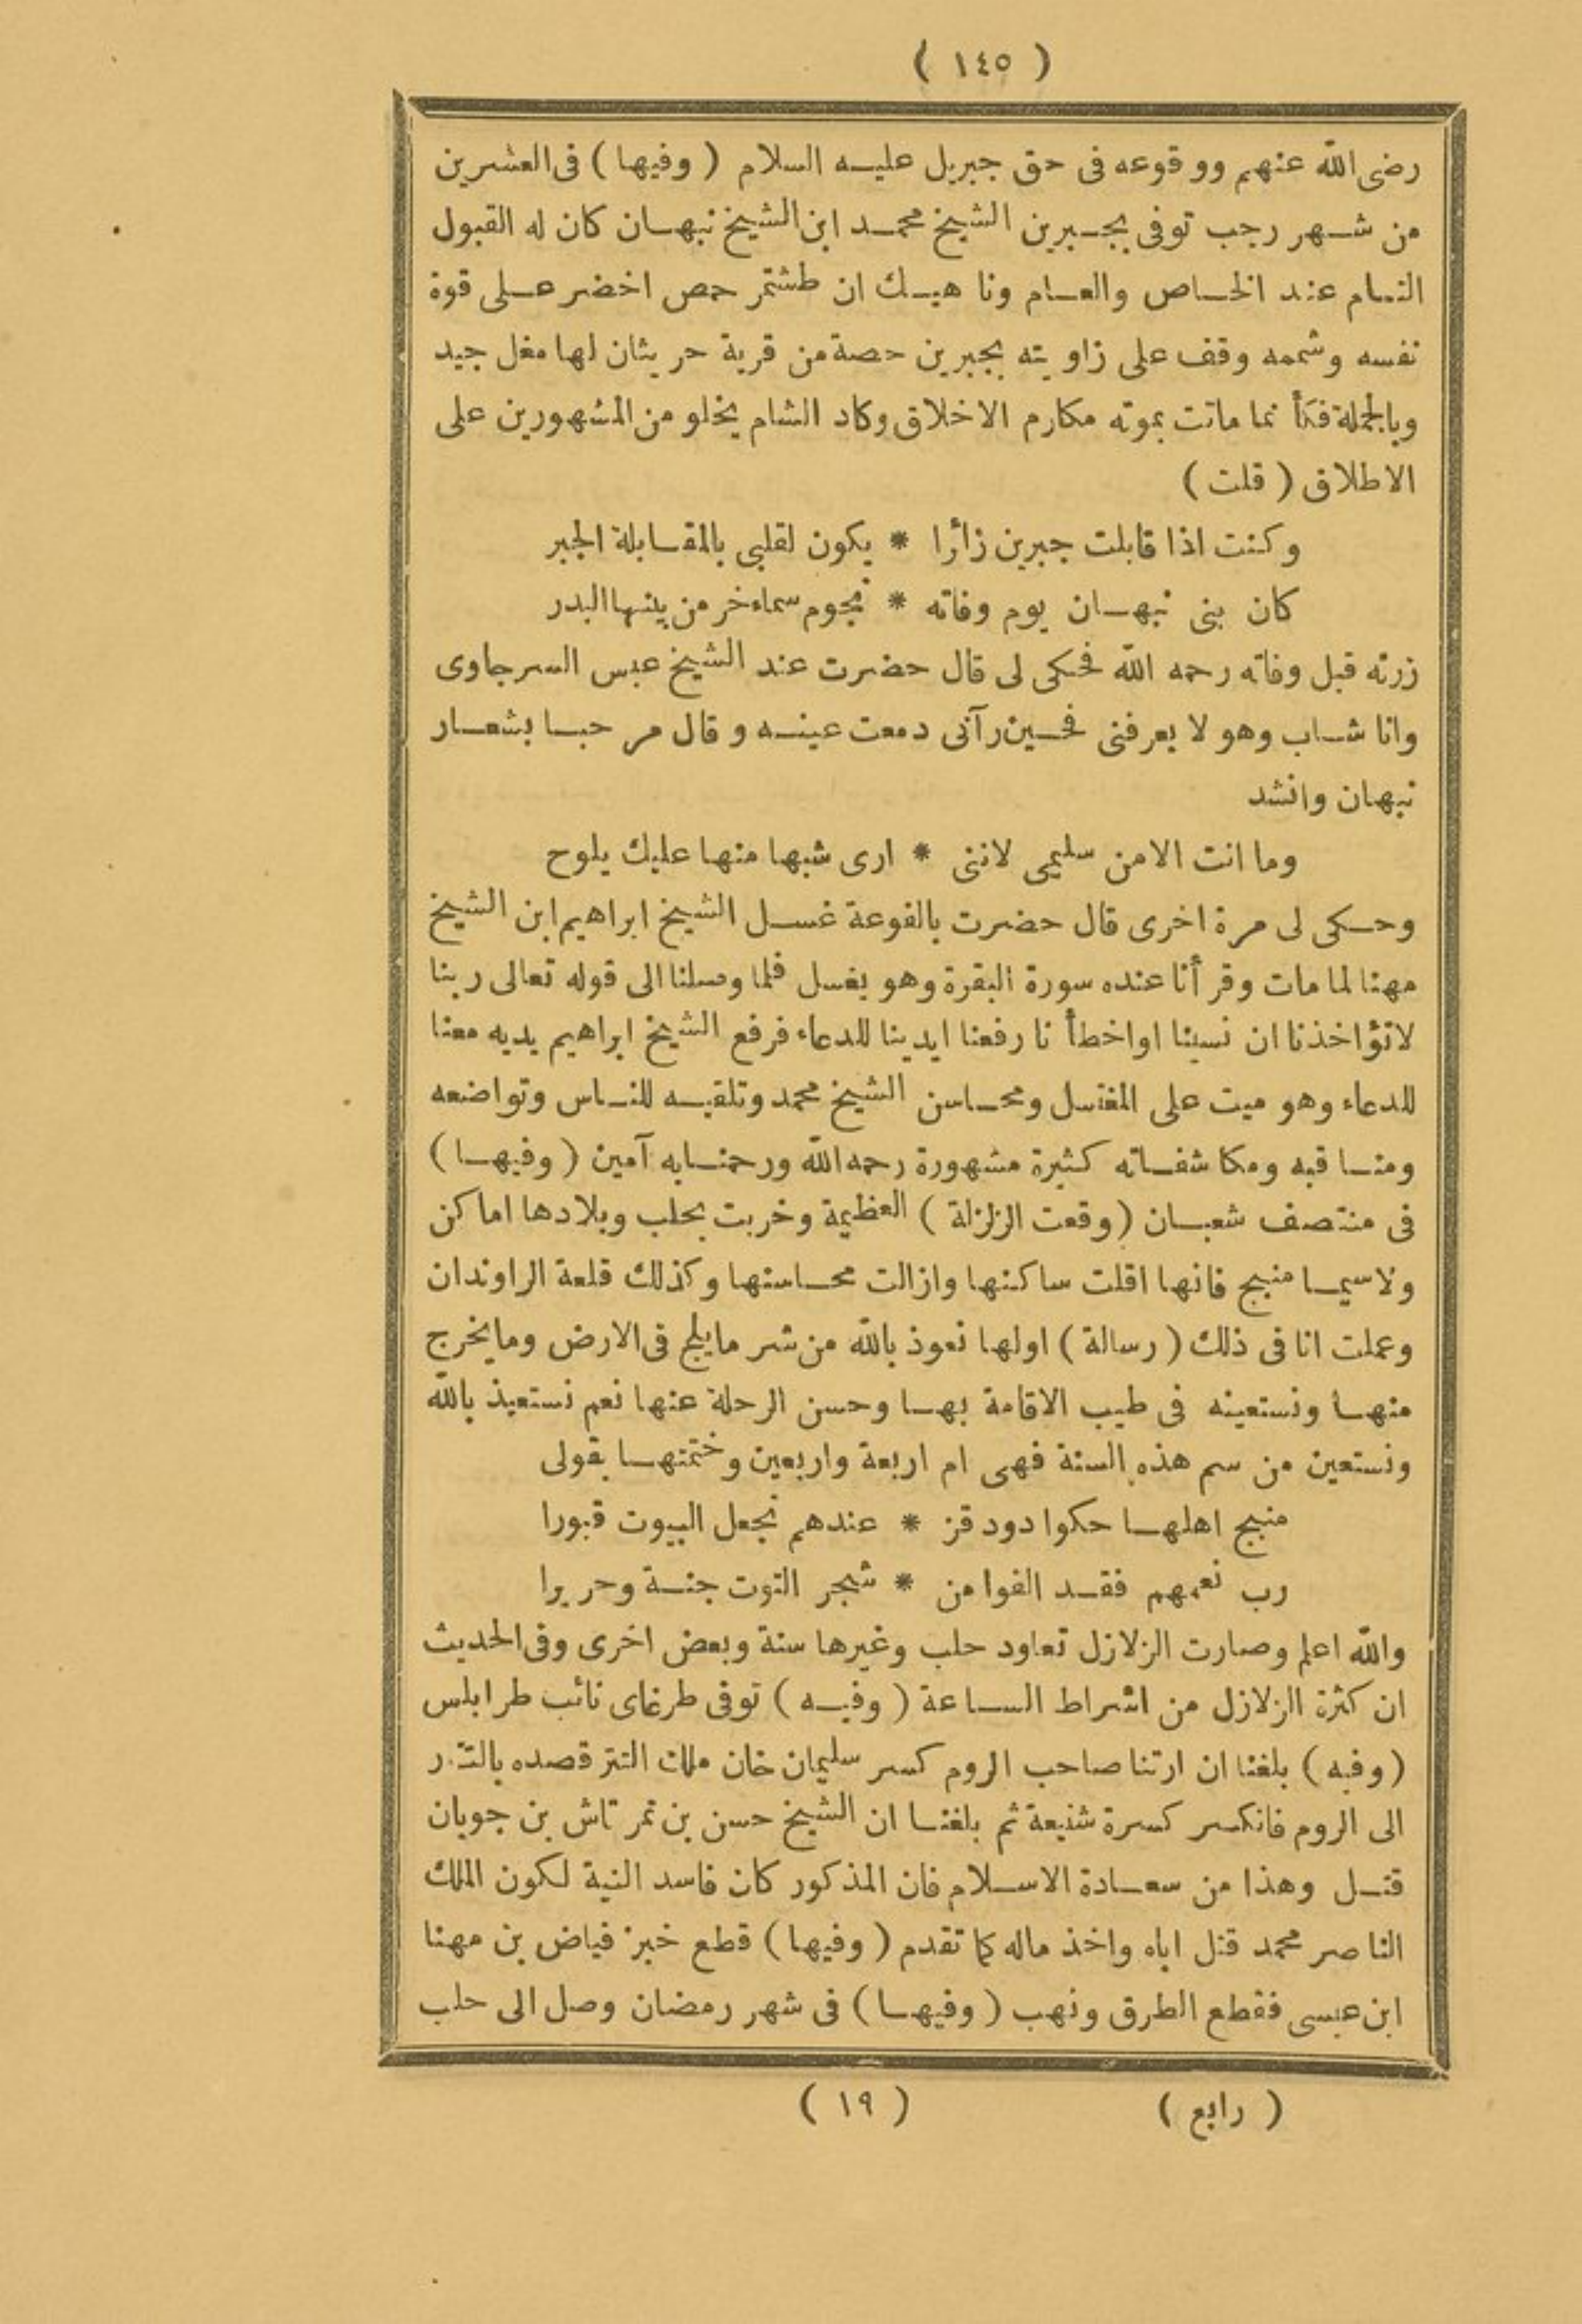 ( ١٤٥ )
رضى الله عنهم ووقوعه فى حق جبريل عليه السلام ( وفيها ) فى العشرين
من شهر رجب توفى بجبرين الشيخ محمد ابن الشيخ نبهان كان له القبول
التام عند الخاص والعام وناهيك ان طشتمر حمص اخضر على قوة
نفسه وشممه وقف على زاويته بجبرين حصة من قرية حريثان لها مغل جيد
وبالجملة فكأنما ماتت بموته مكارم الاخلاق وكاد الشام يخلو من المشهورين على
الاطلاق ( قلت )
وكنت اذا قابلت جبرين زائرا * يكون لقلبى بالمقابلة الجبر
كان بنى نبهان يوم وفاته * نجوم سماء خر من بينها البدر
زرته قبل وفاته رحمه الله فحكى لى قال حضرت عند الشيخ عبس السرجاوى
وانا شاب وهو لا يعرفنى فحين رآنى دمعت عينه وقال مرحبا بشعار
نبهان وانشد
وما انت الا من سليمى لاننى * ارى شبها منها عليك يلوح
وحكى لى مرة اخرى قال حضرت بالفوعة غسل الشيخ ابراهيم ابن الشيخ
مهنا لما مات وقرأنا عنده سورة البقرة وهو يغسل فلما وصلنا الى قوله تعالى ربنا
لاتؤاخذنا ان نسينا او اخطأنا رفعنا ايدينا للدعاء فرفع الشيخ ابراهيم يديه معنا
للدعاء وهو ميت على المغتسل ومحاسن الشيخ محمد وتلقيه للناس وتواضعه
ومناقبه ومكاشفاته كثيرة مشهورة رحمه الله ورحمنا به آمين ( وفيها )
فى منتصف شعبان ( وقعت الزلزلة ) العظيمة وخربت بحلب وبلادها اماكن
ولاسيما منبج فانها اقلت ساكنها وازالت محاسنها وكذلك قلعة الراوندان
وعملت انا فى ذلك ( رسالة ) اولها نعوذ بالله من شر مايلج فى الارض ومايخرج
منها ونستعينه فى طيب الاقامة بها وحسن الرحلة عنها نعم نستعيذ بالله
ونستعين من سم هذه السنة فهى ام اربعة واربعين وختمتها بقولى
منبج اهلها حكوا دود قز * عندهم تجعل البيوت قبورا
رب نعمهم فقد الفوا من * شجر التوت جنة وحريرا
والله اعلم وصارت الزلازل تعاود حلب وغيرها سنة وبعض اخرى وفى الحديث
ان كثرة الزلازل من اشراط الساعة ( وفيه ) توفى طرغاى نائب طرابلس
( وفيه ) بلغنا ان ارتنا صاحب الروم كسر سليمان خان ملك التتر قصده بالتتر
الى الروم فانكسر كسرة شنيعة ثم بلغنا ان الشيخ حسن بن تمرتاش بن جوبان
قتل وهذا من سعادة الاسلام فان المذكور كان فاسد النية لكون الملك
الناصر محمد قتل اباه واخذ ماله كما تقدم ( وفيها ) قطع خبز فياض بن مهنا
ابن عيسى فقطع الطرق ونهب ( وفيها ) فى شهر رمضان وصل الى حلب
( رابع ) ( ١٩ )